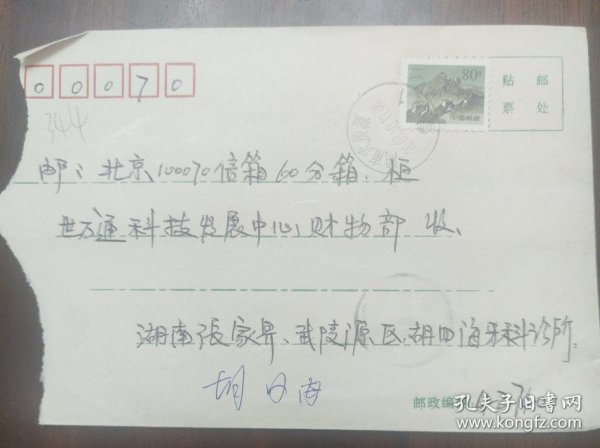 00070
80分
中国邮政
贴 邮
票 处
344
邮：北京100070信箱60分箱、柜
世方通科技发展中心，财物部 收、
湖南張家界、武陵源区、胡四海牙科诊所
邮政编
孔夫子旧书网